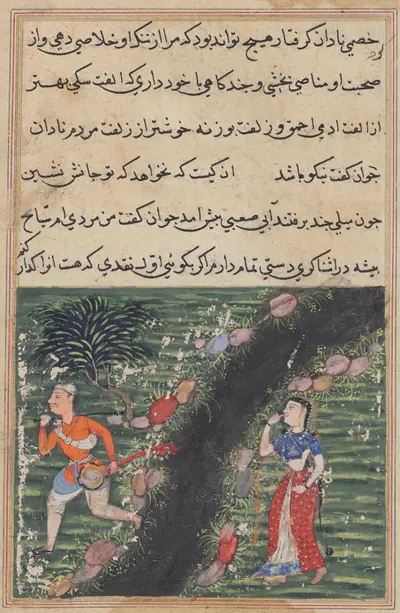 خصی نادان گرفتار هیچ تواند بود که مرا از ننک او خلاصی دهی و از
صحبت او مناصی بخشی و چند کاهی با خود داری که الفت سکی بهتر
از الفت ادمی احمق و زلفت بوزنه خوشتر از زلفت مردم نادان
جوان کفت نیکو باشد ان کیست که نخواهد که تو جانش نشین
چون میلی چند برفتند آبی صعبی پیش امد جوان کفت من مردی ام سباح
پیشه در اشنا کری دستی تمام دارم اگر بکوئی اول نقدی که هست انرا کذار
کنم